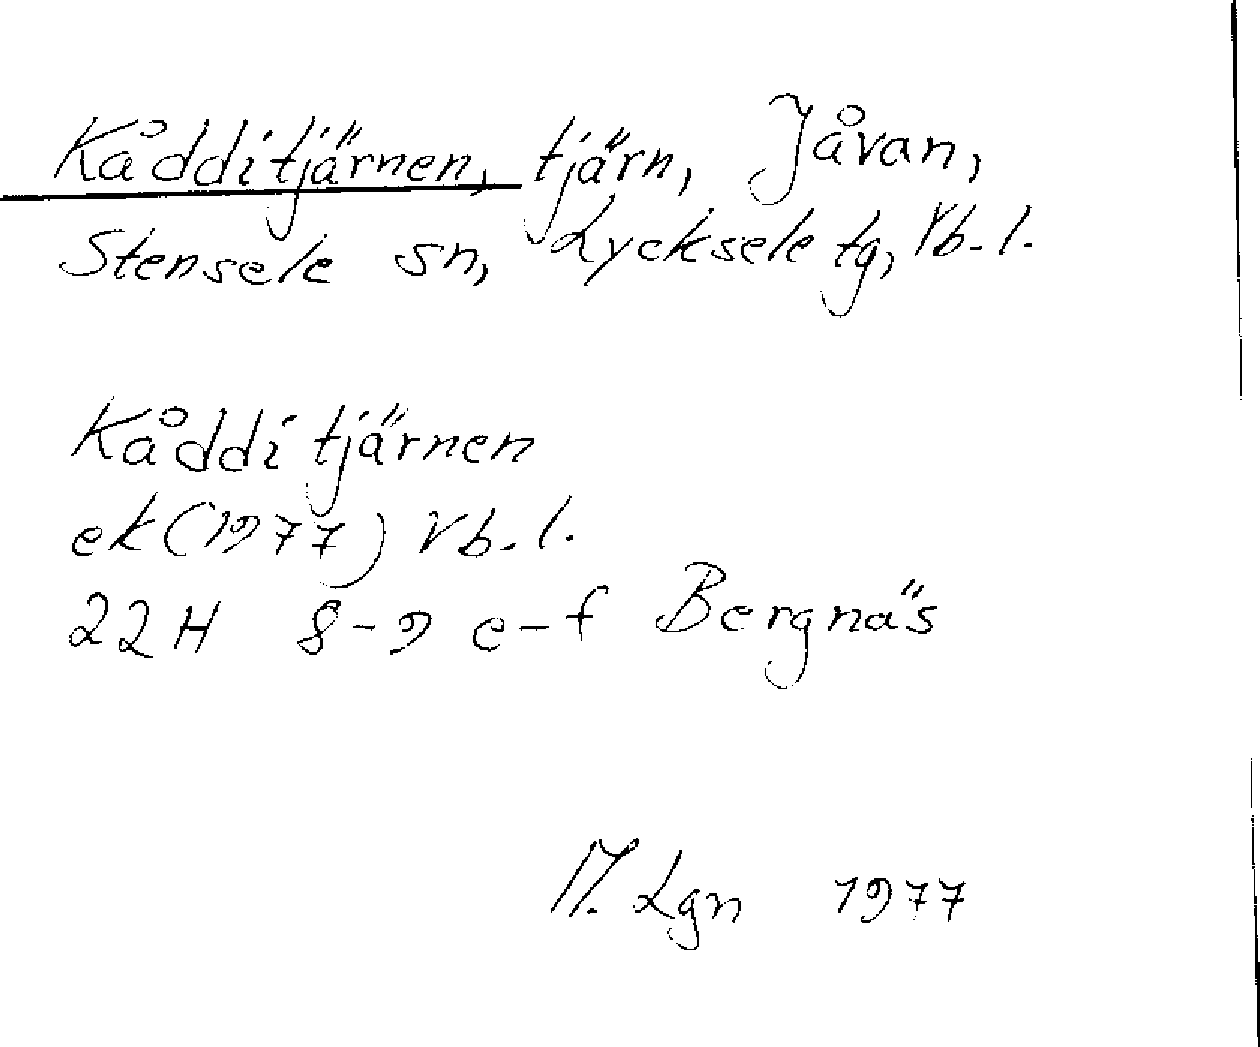 Kådditjärnen, tjärn, Jåvan,
Stensele sn, Lycksele tg, Vb. l.
Kådditjärnen
ek (1977) Vb. l.
22H 8-9 e-f Bergnäs
M. Lgn 1977